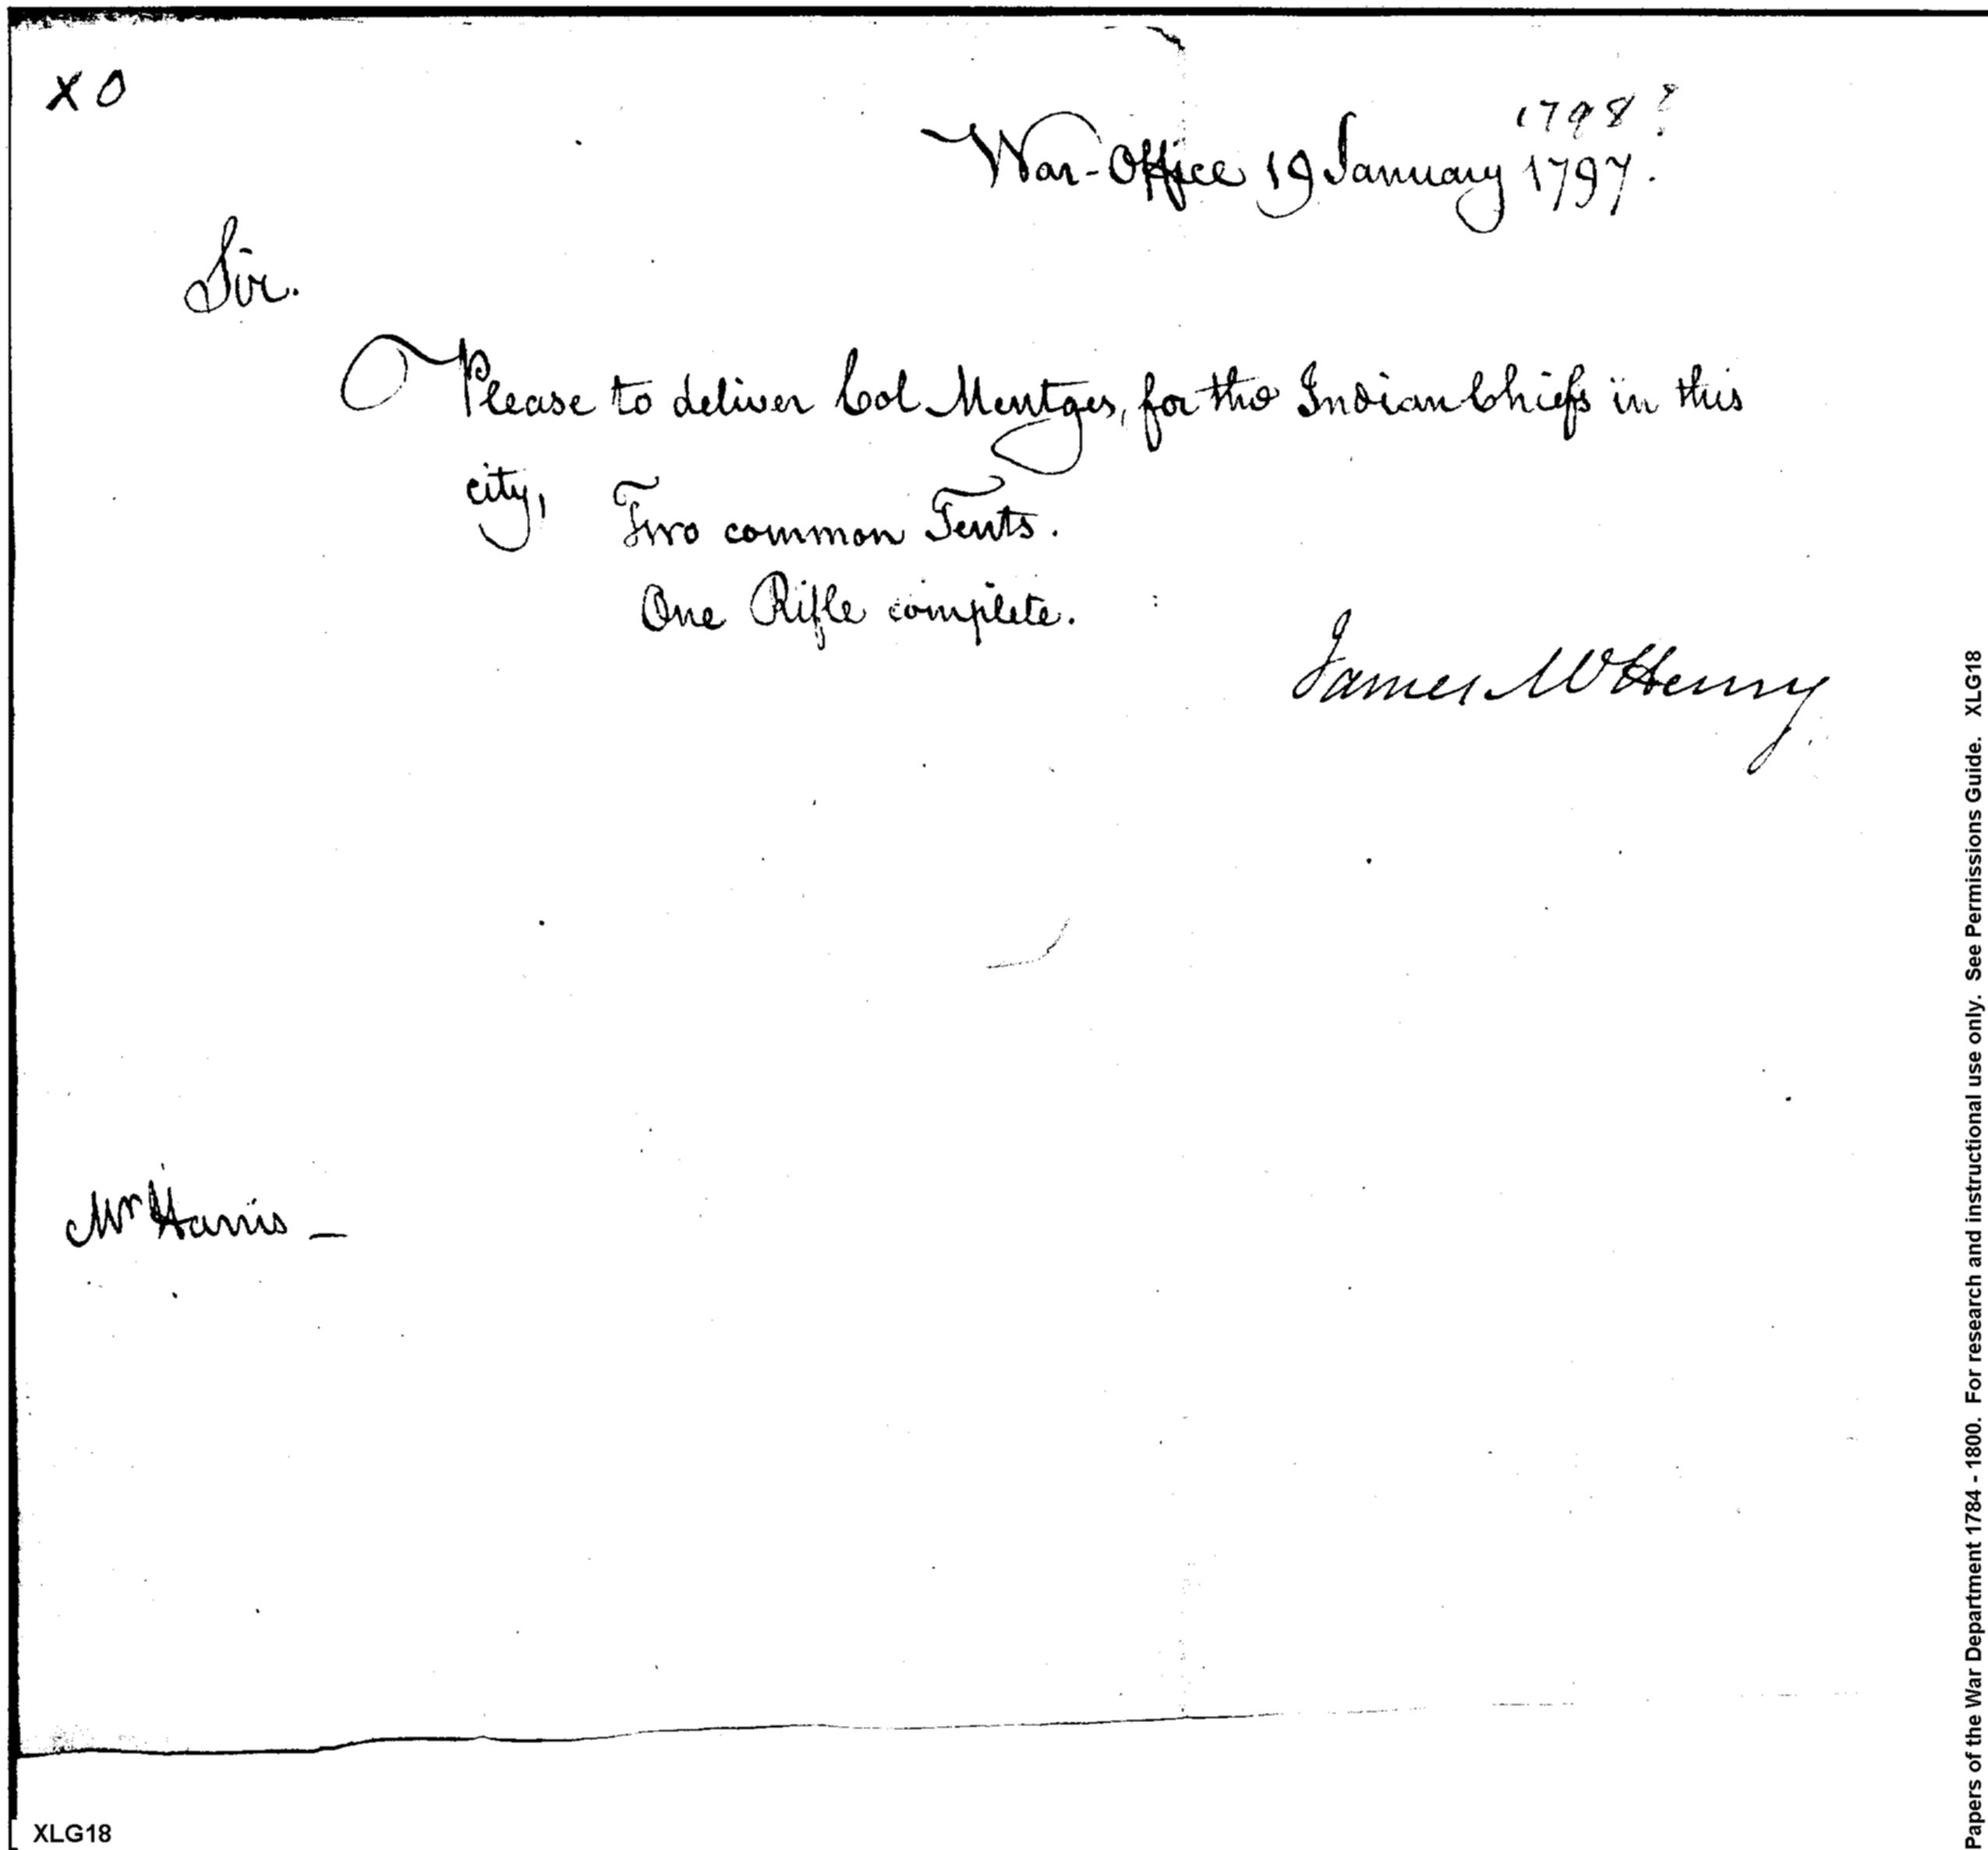 X O
1798?
War-Office 19 January 1797.
Sir.
Please to deliver Col Mentges, for the Indian Chiefs in this
city,
Two common Tents.
One Rifle complete.
James McHenry
Mr Harris —
XLG18
Papers of the War Department 1784 - 1800. For research and instructional use only. See Permissions Guide. XLG18